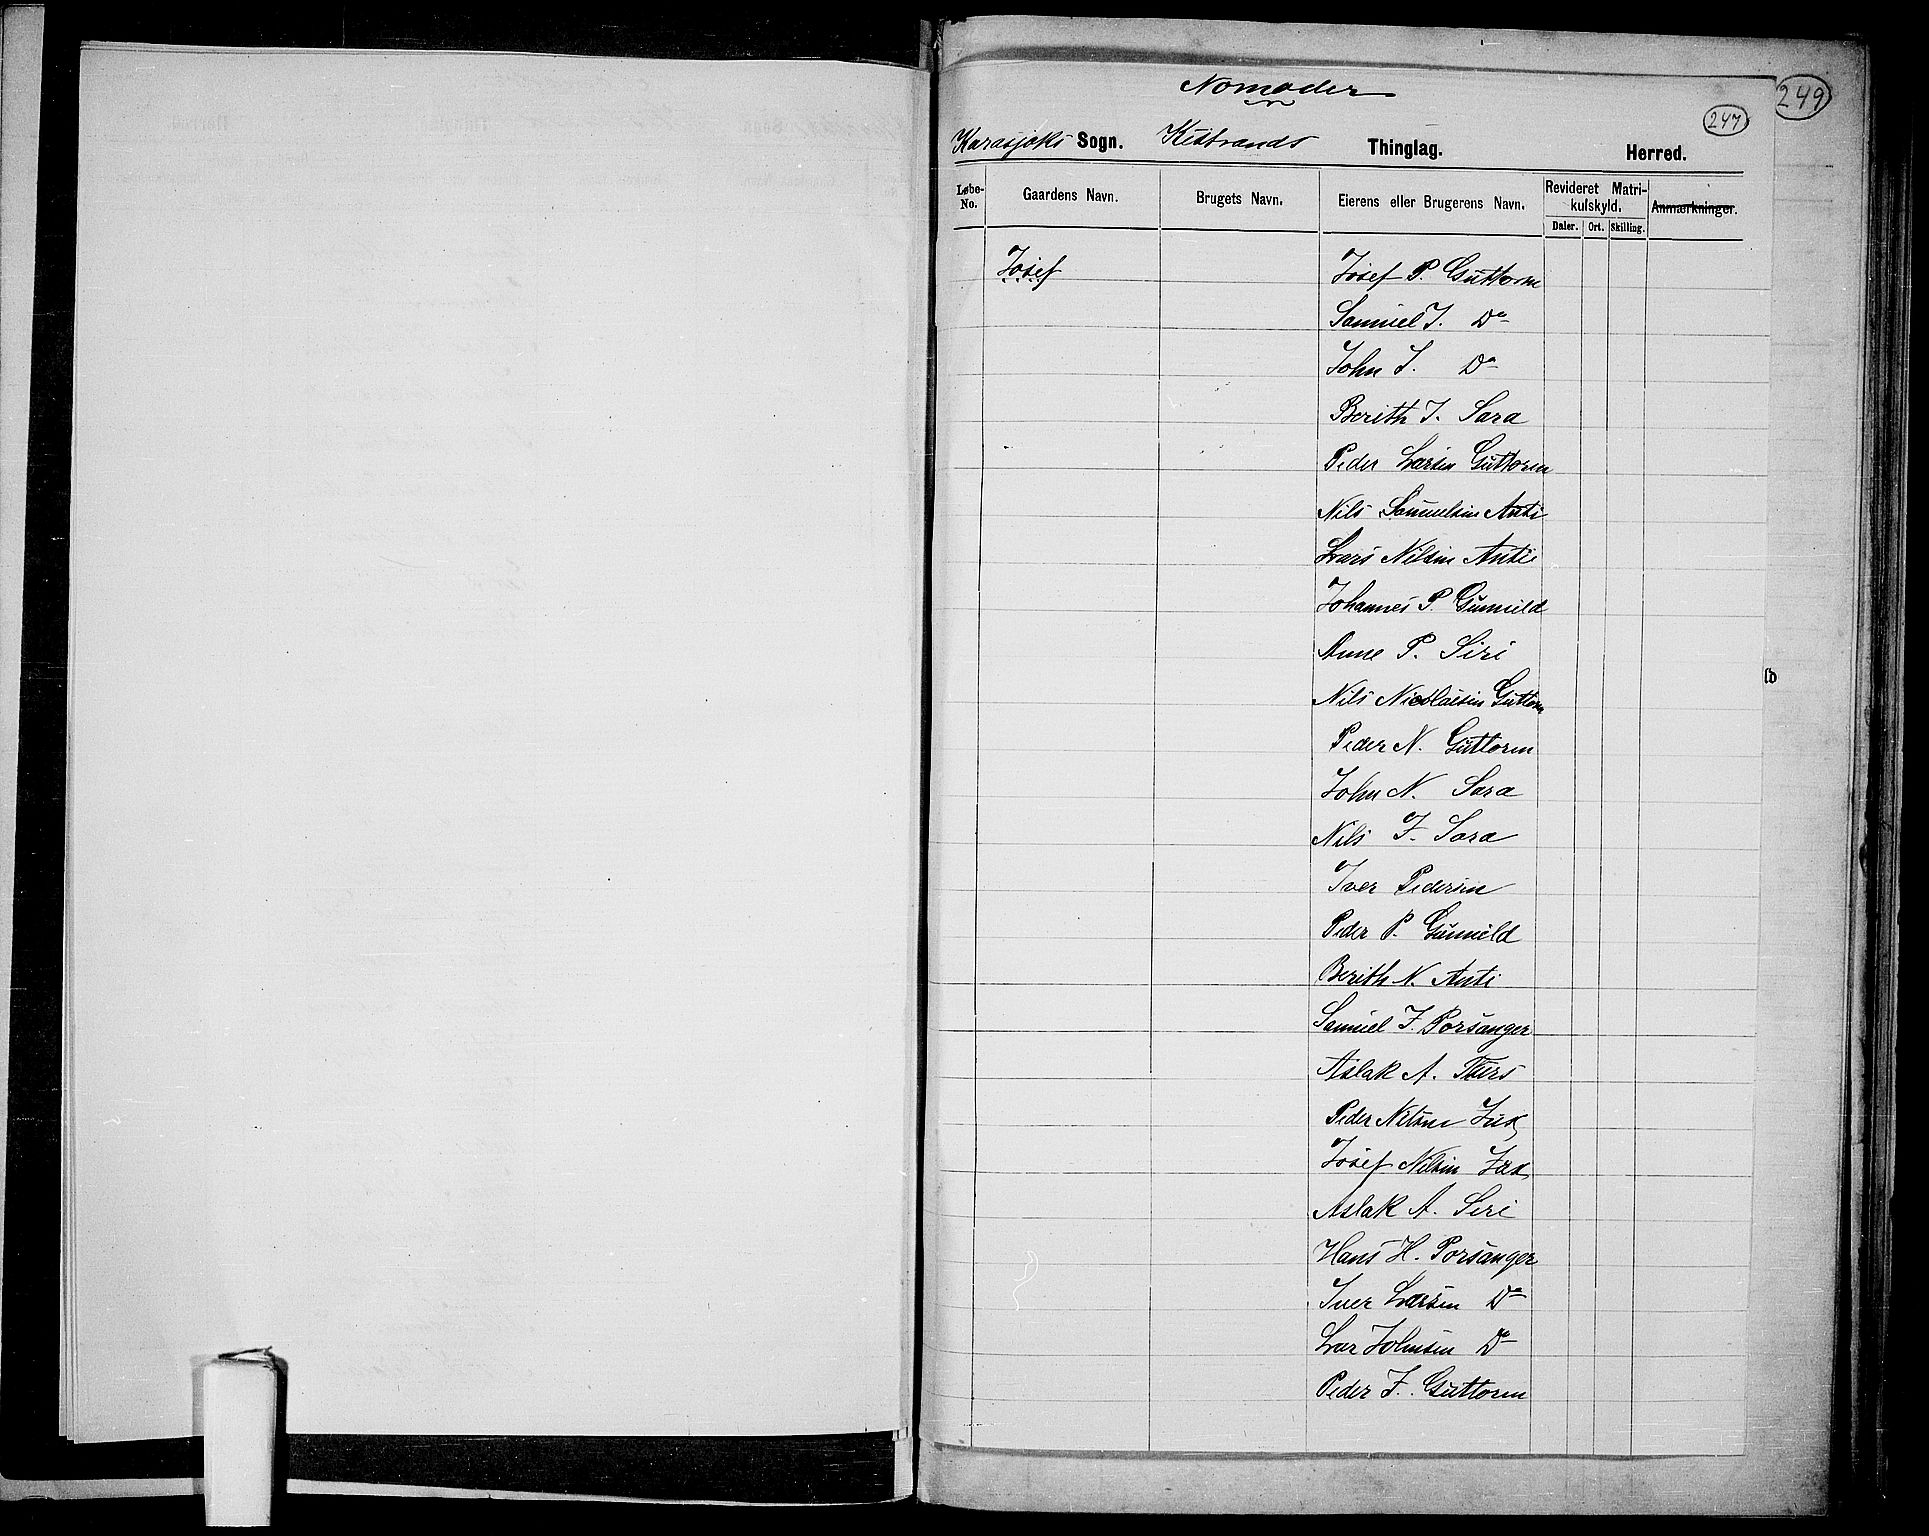 Nomader
249
247
Karasjoks Sogn. Kistrands Thinglag. Herred.
Løbe-No. Gaardens Navn. Brugets Navn. Eierens eller Brugerens Navn. Revideret Matrikulskyld. Anmærkninger.
Daler. Ort. Skilling.
Josef Josef P. Guttorm
Samuel J. Do
John J. Do
Berith J. Sara
Peder Larsen Guttorm
Nils Samuelsen Anti
Lars Nilsen Anti
Johannes P. Gunnild
Anne P. Siri
Nils Nicolaisen Guttorm
Peder N. Guttorm
John N. Sara
Nils J. Sara
Iver Pedersen
Peder P. Gunnild
Berith N. Anti
Samuel J. Porsanger
Aslak A. Thers
Peder Nilsen Jux
Josef Nilsen Jux
Aslak A. Siri
Hans H. Porsanger
Iver Larsen Do
Lars Johnsen Do
Peder J. Guttorm
ld